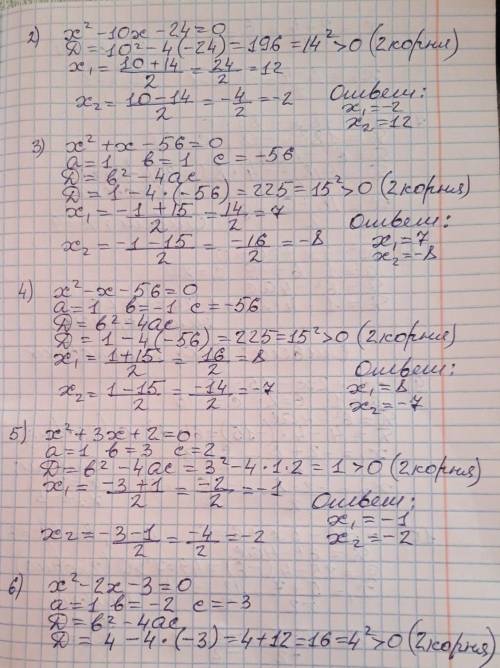 2) x² - 10x - 24 = 0
D = 10² - 4(-24) = 196 = 14² > 0 (2 корня)
x₁ = (10+14)/2 = 24/2 = 12
x₂ = (10-14)/2 = -4/2 = -2
Ответ:
x₁ = -2
x₂ = 12
3) x² + x - 56 = 0
a = 1 в = 1 c = -56
D = в² - 4ac
D = 1 - 4 · (-56) = 225 = 15² > 0 (2 корня)
x₁ = (-1+15)/2 = 14/2 = 7
x₂ = (-1-15)/2 = -16/2 = -8
Ответ:
x₁ = 7
x₂ = -8
4) x² - x - 56 = 0
a = 1 в = -1 c = -56
D = в² - 4ac
D = 1 - 4(-56) = 225 = 15² > 0 (2 корня)
x₁ = (1+15)/2 = 16/2 = 8
x₂ = (1-15)/2 = -14/2 = -7
Ответ:
x₁ = 8
x₂ = -7
5) x² + 3x + 2 = 0
a = 1 в = 3 c = 2
D = в² - 4ac = 3² - 4 · 1 · 2 = 1 > 0 (2 корня)
x₁ = (-3+1)/2 = -2/2 = -1
x₂ = (-3-1)/2 = -4/2 = -2
Ответ:
x₁ = -1
x₂ = -2
6) x² - 2x - 3 = 0
a = 1 в = -2 c = -3
D = в² - 4ac
D = 4 - 4 · (-3) = 4 + 12 = 16 = 4² > 0 (2 корня)